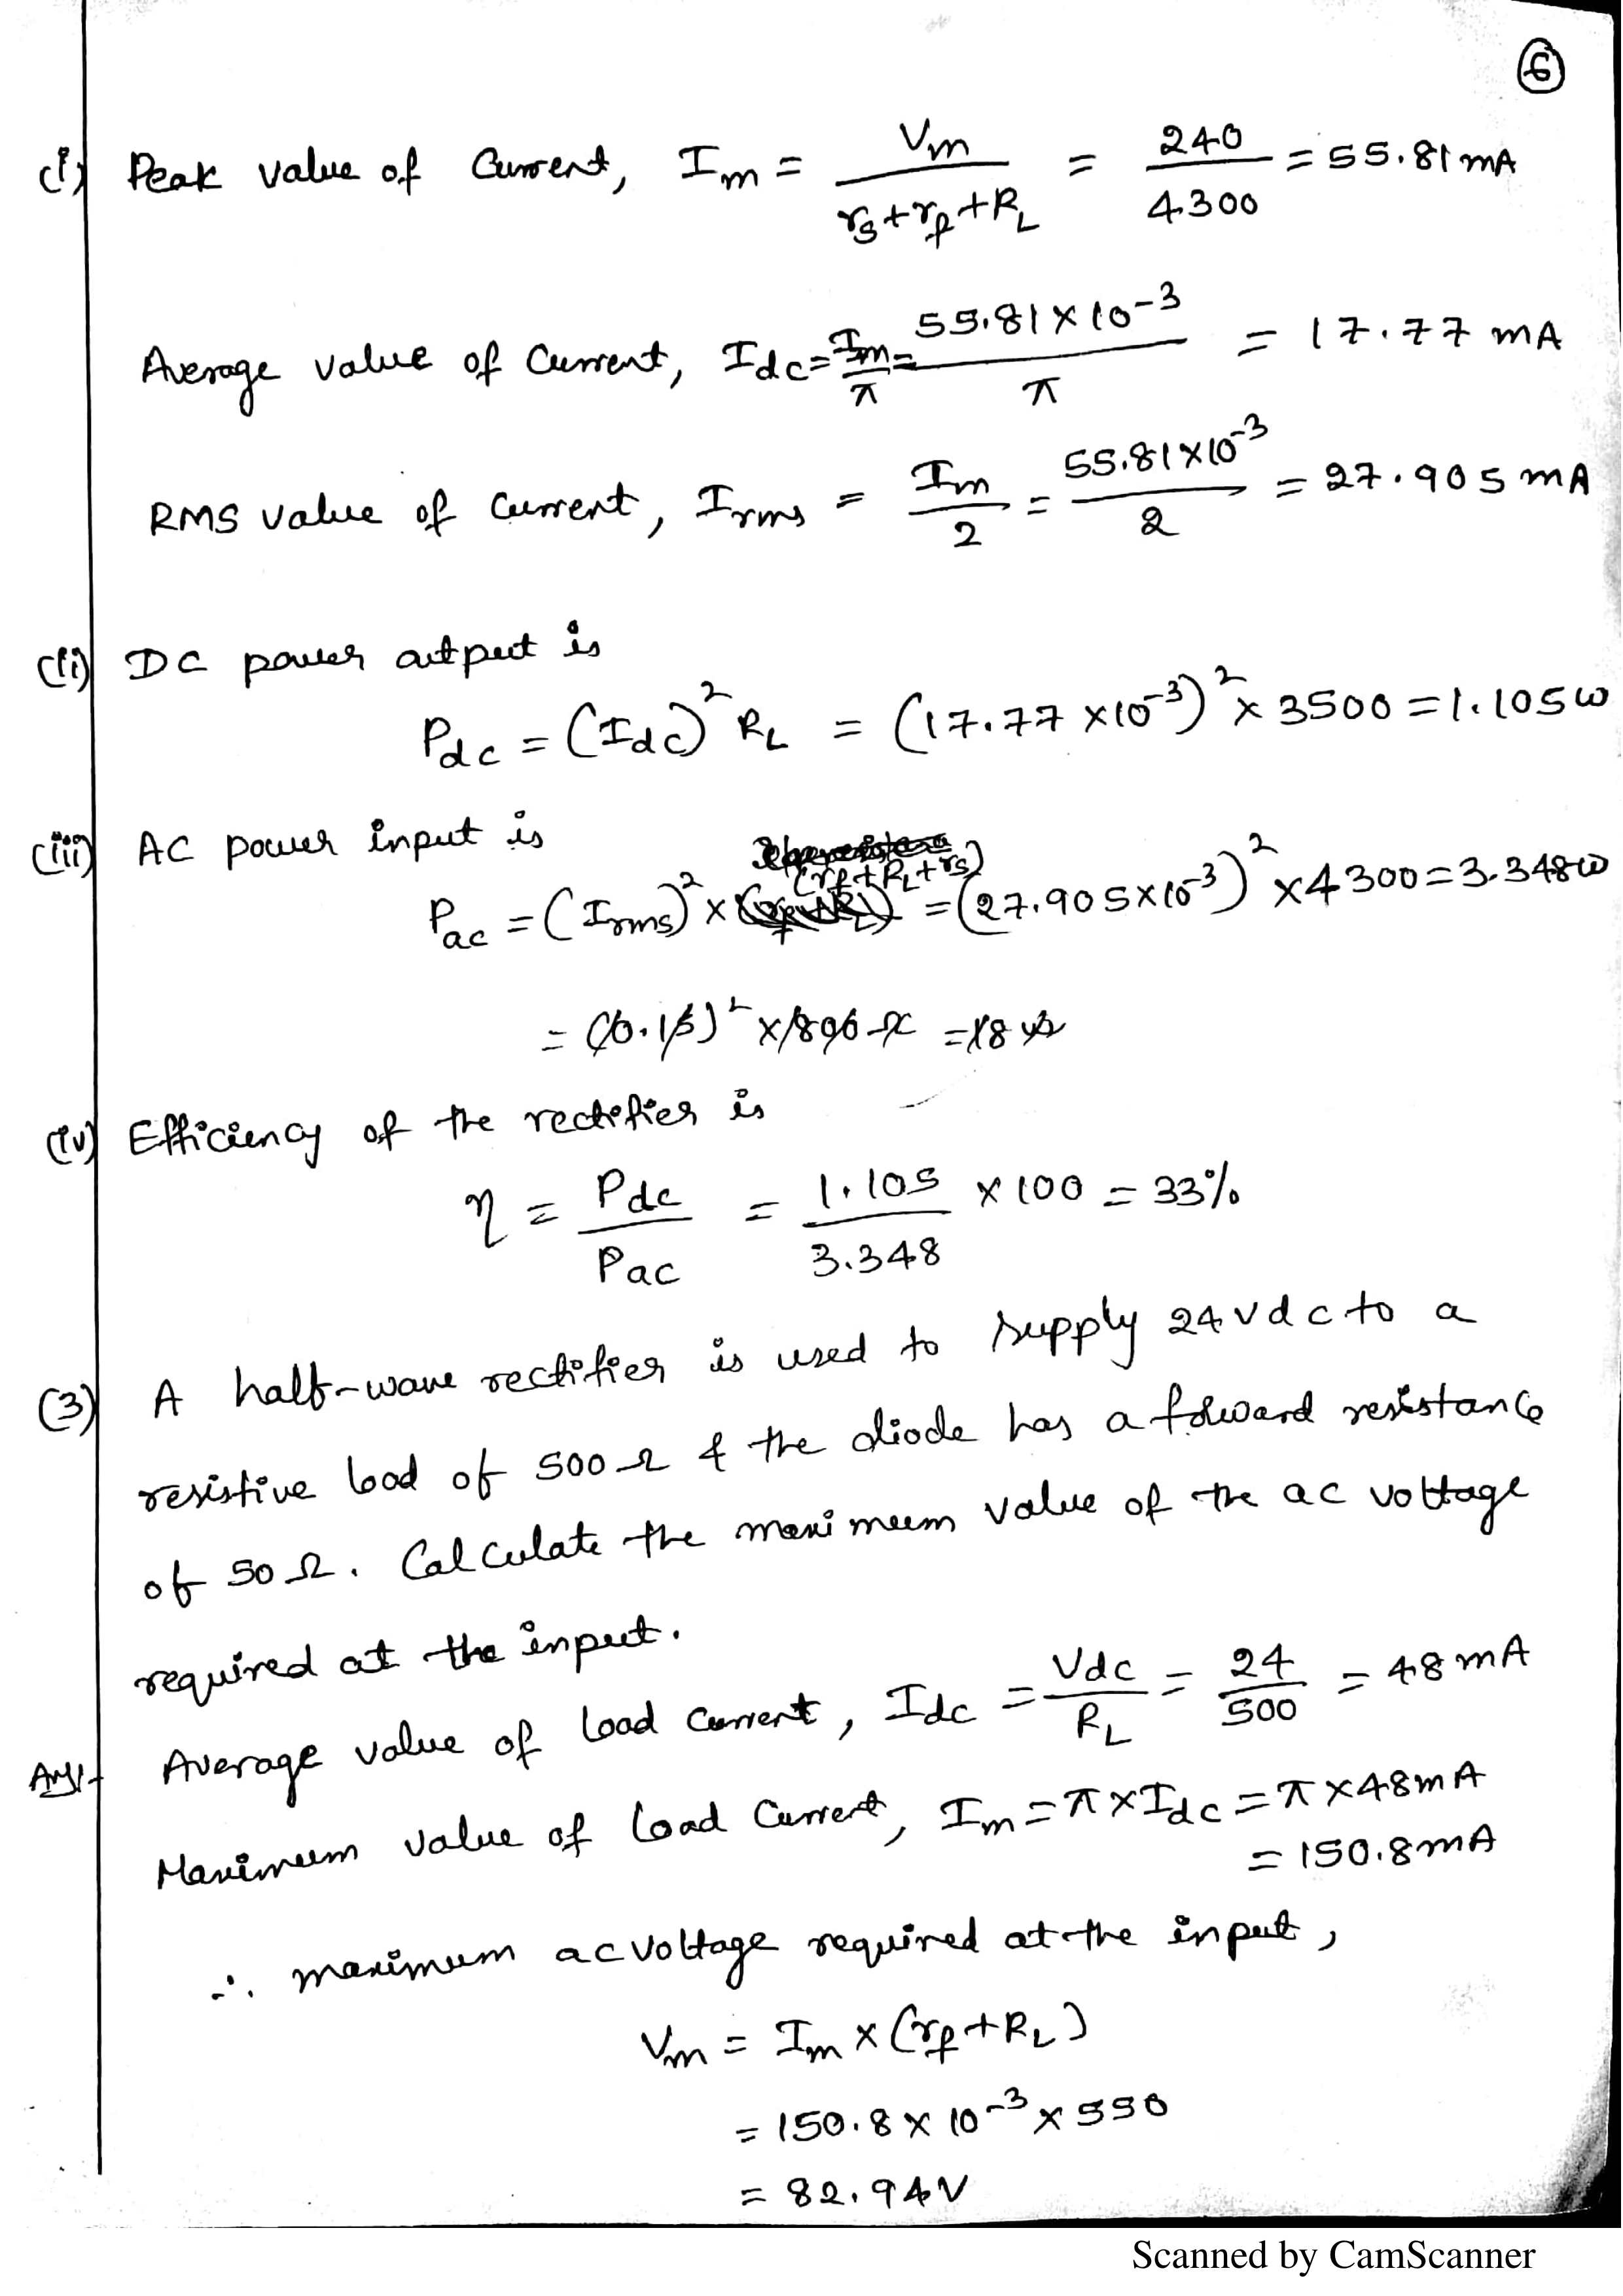 6
(i) Peak value of Current, Im = Vm / (rs+rf+RL) = 240 / 4300 = 55.81mA
Average value of Current, Idc = Im/π = 55.81×10⁻³ / π = 17.77 mA
RMS value of current, Irms = Im / 2 = 55.81×10⁻³ / 2 = 27.905 mA
(ii) DC power output is
Pdc = (Idc)² RL = (17.77 ×10⁻³)² × 3500 = 1.105w
(iii) AC power input is
Pac = (Irms)² × (rf+RL+rs) = (27.905×10⁻³)² ×4300 = 3.348w
(iv) Efficiency of the rectifier is
η = Pdc / Pac = 1.105 / 3.348 × 100 = 33%
(3) A half-wave rectifier is used to supply 24vdc to a
resistive load of 500Ω & the diode has a forward resistance
of 50Ω. Calculate the maximum value of the ac voltage
required at the input.
Ans:- Average value of load current, Idc = Vdc / RL = 24 / 500 = 48mA
Maximum value of load Current, Im = π×Idc = π×48mA
= 150.8mA
∴ maximum ac voltage required at the input,
Vm = Im × (rf+RL)
= 150.8 × 10⁻³ × 550
= 82.94V
Scanned by CamScanner